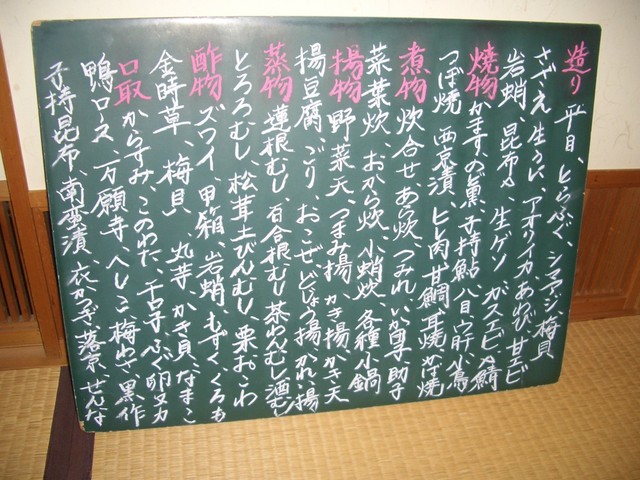 造り 平目、とらふぐ、シマアジ、梅貝
さざえ、生うに、アオリイカ、あわび、甘エビ
岩蛸、昆布〆、生ゲソ、ガスエビ、〆鯖
焼物 かます、のど黒、子持鮎、八目、ウ肝、小鳥
つぼ焼、西京漬、ヒレ肉、甘鯛、耳焼、かけ焼
煮物 炊合せ、あら炊、つみれ、いか
菜葉炊、おから炊、小蛸炊、各種小鍋
揚物 野菜天、つまみ揚、かき揚、かき天
揚豆腐、ごり、おこぜ、どじょう揚、かれい揚
蒸物 蓮根むし、百合根むし、茶わんむし、酒むし
とろろむし、松茸土びんむし、栗おこわ
酢物 ズワイ、甲箱、岩蛸、もずく、くろも
金時草、梅貝、丸芋、かき貝、なまこ
口取 からすみ、このわた、干口子、ふぐ卵ヌカ
鴨ロース、万願寺、へしこ、梅わさ、黒作
子持昆布、南蛮漬、衣かつぎ、落京、ぜんな